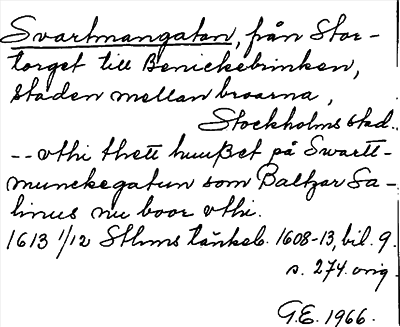 Svartmangatan, från Stor-
torget till Benickebrinken,
staden mellan broarna,
Stockholms stad.
-- vthi thett huußet på Swartt-
munckegatun som Baltzar Sa-
linus nu boor vthi.
1613 1/12 Sthms tänkeb. 1608-13, bil. 9.
s. 274. orig.
G.E. 1966.